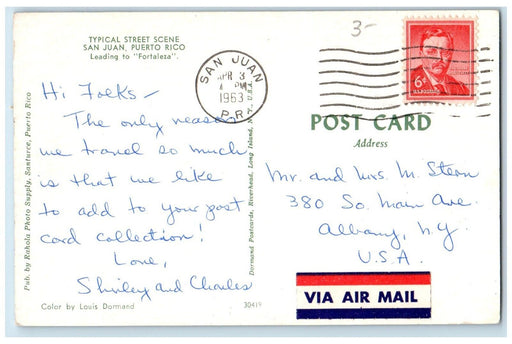 3-
TYPICAL STREET SCENE
SAN JUAN, PUERTO RICO
Leading to "Fortaleza".
SAN JUAN
APR 3
PM
1963
P.R.
6¢
Hi Folks -
The only reason
we travel so much
is that we like
to add to your post
card collection!
Love,
Shirley and Charles
POST CARD
Address
Mr. and Mrs. M. Stern
380 So. Main Ave.
Albany, N.Y.
U.S.A.
VIA AIR MAIL
Pub. by Rahola Photo Supply, Santurce, Puerto Rico
Dormand Postcards, Riverhead, Long Island, N.Y., U.S.A.
Color by Louis Dormand
30419